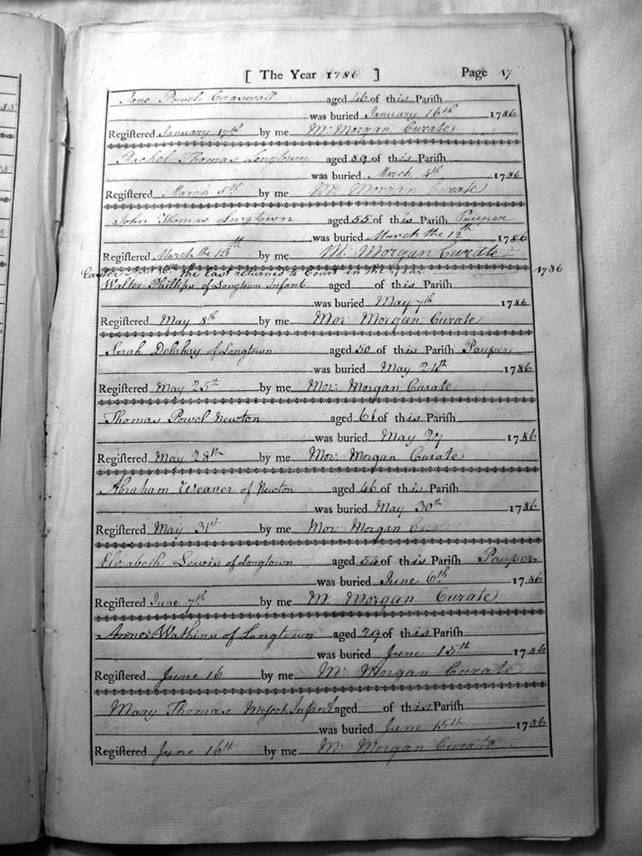 [ The Year 1786 ] Page 17
Jane Powel Craswall aged 46 of this Parish
was buried January 16th 1786
Registered January 17th by me M. Morgan Curate
Rachel Thomas Longtown aged 59 of this Parish
was buried March 4th 1786
Registered March 5th by me M. Morgan Curate
John Thomas Longtown aged 55 of this Parish Pauper
was buried March the 12th 1786
Registered March the 13th by me M. Morgan Curate
the last returned to Court in the Year 1786
Walter Phillips of Longtown Infant aged of this Parish
was buried May 7th 1786
Registered May 8th by me Mor: Morgan Curate
Sarah Delahay of Longtown aged 50 of this Parish Pauper
was buried May 24th 1786
Registered May 25th by me Mor: Morgan Curate
Thomas Powel Newton aged 61 of this Parish
was buried May 27 1786
Registered May 28th by me Mor: Morgan Curate
Abraham Weaver of Newton aged 46 of this Parish
was buried May 30th 1786
Registered May 31st by me Mor: Morgan Curate
Elizabeth Lewis of Longtown aged 54 of this Parish Pauper
was buried June 6th 1786
Registered June 7th by me M. Morgan Curate
Watkins of Longtown aged 29 of this Parish
was buried June 15th 1786
Registered June 16 by me M. Morgan Curate
Mary Thomas Infant aged of this Parish
was buried June 15th 1786
Registered June 16th by me M. Morgan Curate